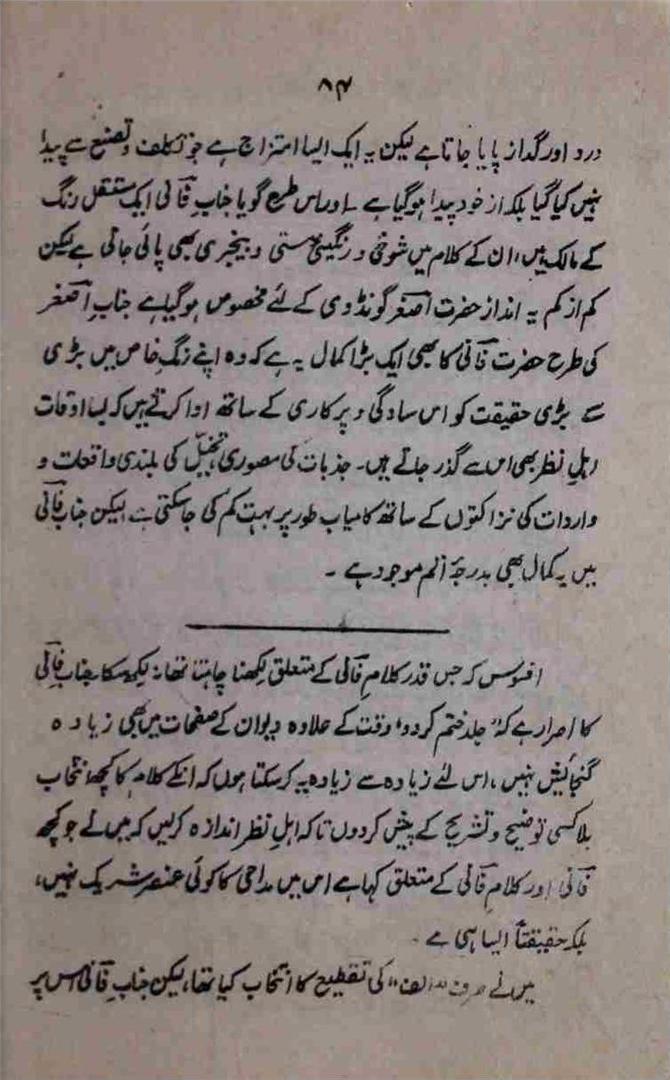 ۸۴
درد اور گداز پایا جاتا ہے لیکن یہ ایک ایسا امتزاج ہے جو تکلف و تصنع سے پیدا
نہیں کیا گیا بلکہ از خود پیدا ہو گیا ہے ۔ اور اس طرح گویا جناب فانی ایک مستقل رنگ
کے مالک ہیں، ان کے کلام میں شوخی و رنگینی مستی و بیخبری بھی پائی جاتی ہے لیکن
کم از کم یہ انداز حضرت اصغر گونڈوی کے لئے مخصوص ہو گیا ہے جناب اصغر
کی طرح حضرت فانی کا بھی ایک بڑا کمال یہ ہے کہ وہ اپنے رنگ خاص میں بڑی
سے بڑی حقیقت کو اس سادگی و پرکاری کے ساتھ ادا کرتے ہیں کہ بسا اوقات
اہلِ نظر بھی اس سے گذر جاتے ہیں۔ جذبات کی مصوری تخیّل کی بلندی واقعات و
واردات کی نزاکتوں کے ساتھ کامیاب طور پر بہت کم کی جا سکتی ہے لیکن جناب فانی
میں یہ کمال بھی بدرجۂ اتم موجود ہے ۔
افسوس کہ جس قدر کلامِ فانی کے متعلق لکھنا چاہتا تھا نہ لکھ سکا، جناب فانی
کا اصرار ہے کہ "جلد ختم کردو" وقت کے علاوہ دیوان کے صفحات میں بھی زیادہ
گنجائش نہیں، اس لئے زیادہ سے زیادہ یہ کر سکتا ہوں کہ انکے کلام کا کچھ انتخاب
بلا کسی توضیح و تشریح کے پیش کر دوں تاکہ اہلِ نظر اندازہ کرلیں کہ میں نے جو کچھ
فانی اور کلامِ فانی کے متعلق کہا ہے اس میں مداحی کا کوئی عنصر شریک نہیں،
بلکہ حقیقتاً ایسا ہی ہے ۔
میں نے صرف "الف" کی تقطیع کا انتخاب کیا تھا، لیکن جناب فانی اس پر